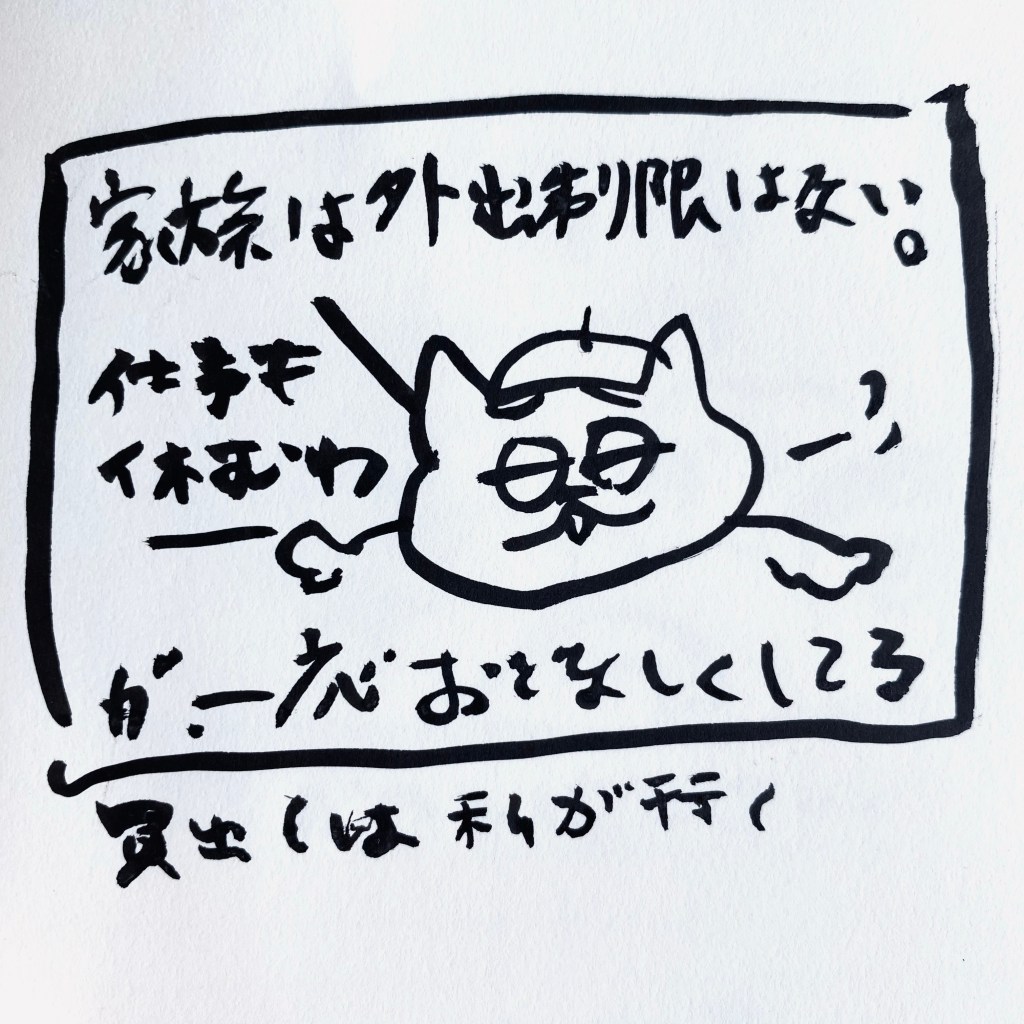 家族は外出制限はない。
仕事も
休むわ
が、一応おとなしくしてる
買出しは私が行く